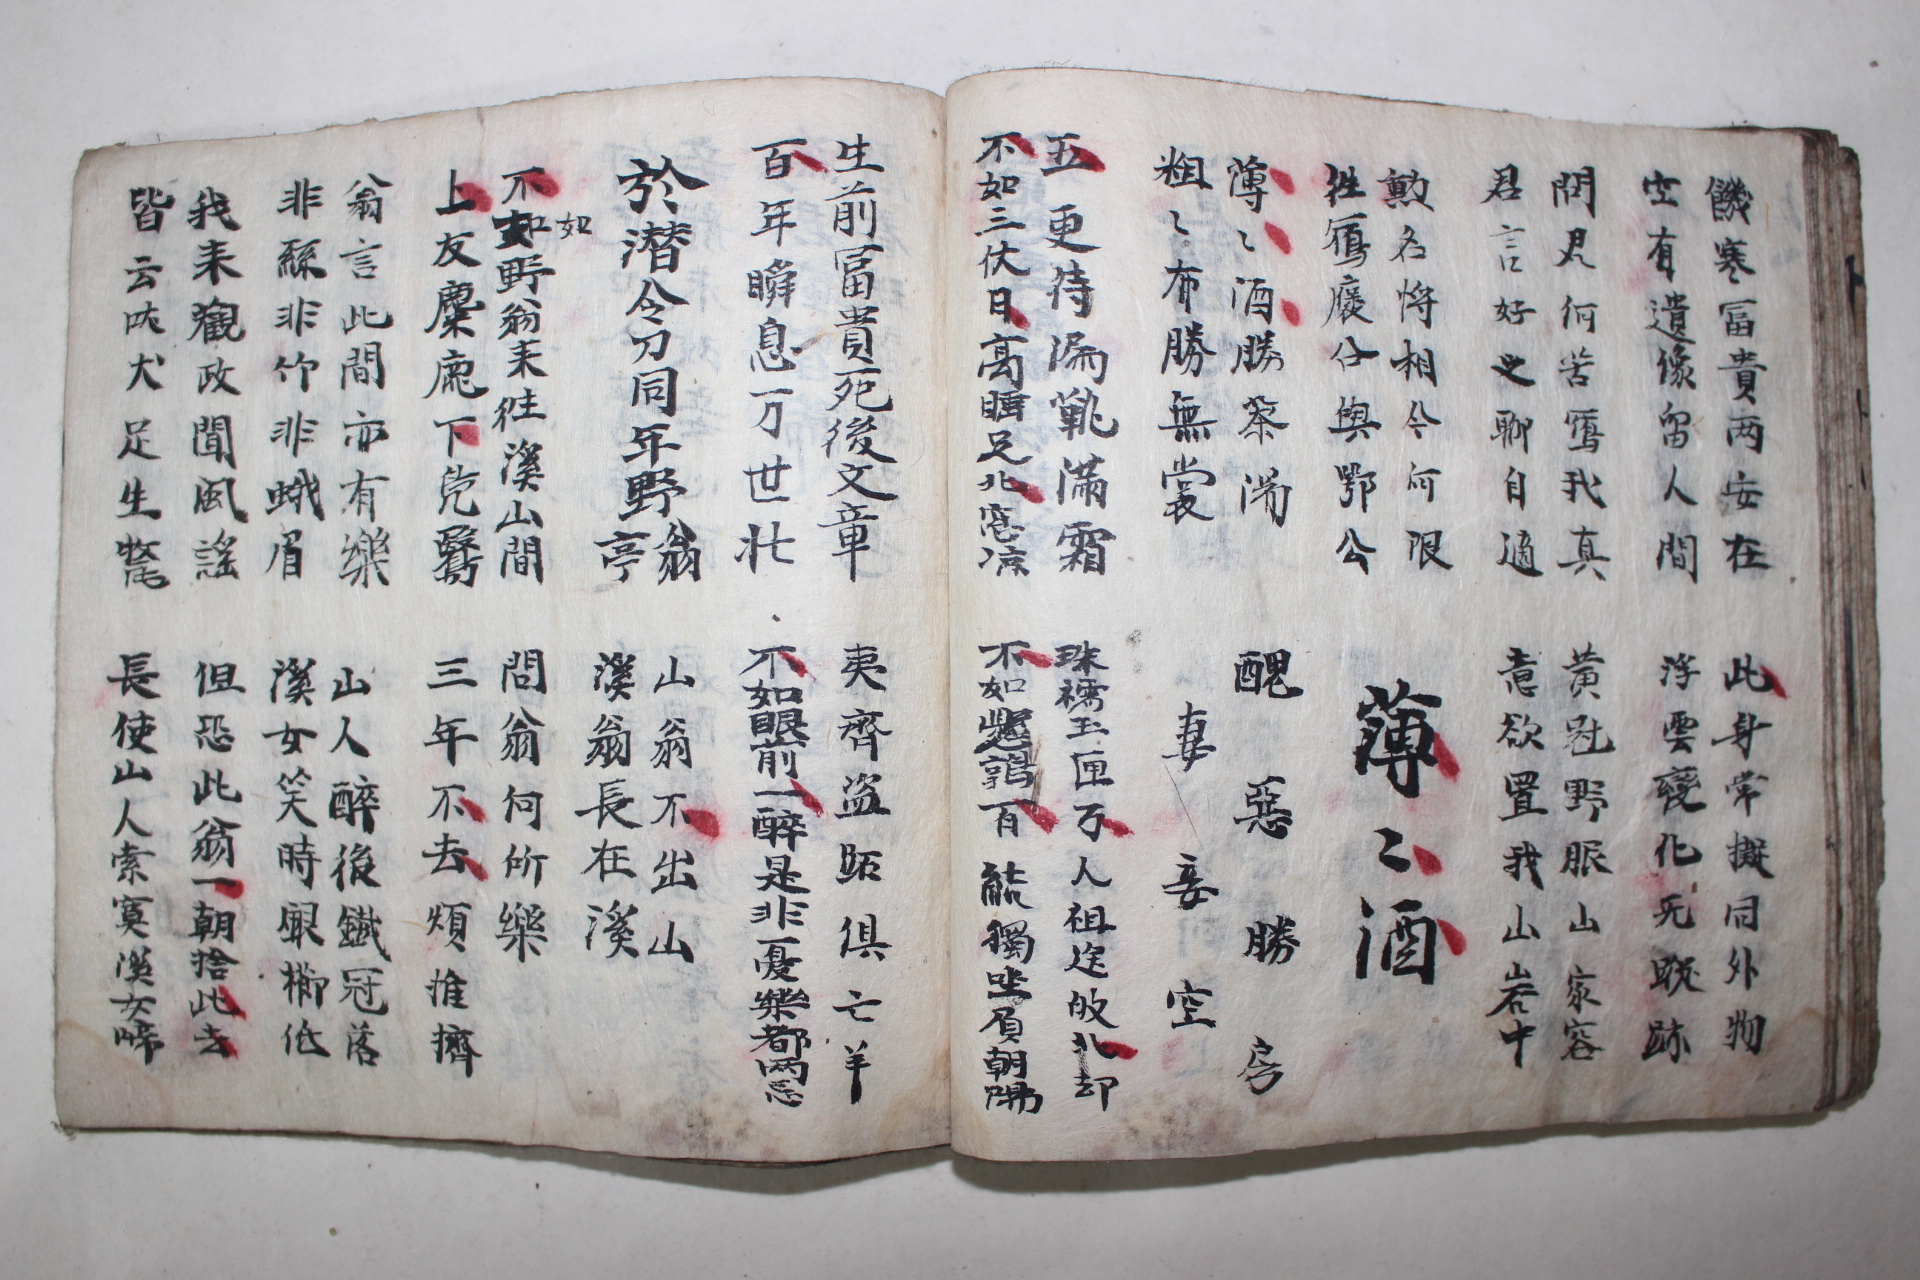 饑寒冨貴两安在
空有遺像留人間
此身常擬同外物
浮雲變化无蹤跡
問君何苦寫我真
君言好之聊自適
黃冠野服山家容
意欲置我山岩中
勳名将相今何限
徃寫褒公與鄂公
薄〻酒
薄〻酒勝茶湯
粗〻布勝無裳
醜惡勝房
妻妾空
五更待漏靴滿霜
不如三伏日高睡足北窓凉
珠襦玉匣万人祖送歸北邙
不如懸鶉百結獨坐負朝陽
生前冨貴死後文章
百年瞬息万世忙
夷齊盗跖俱亡羊
不如眼前一醉是非憂樂都两忘
於潜令刀同年野翁亭
山翁不出山
溪翁長在溪
不如野翁来徃溪山間
如
上友麋鹿下鳧鷖
問翁何所樂
三年不去煩推擠
翁言此間亦有樂
非絲非竹非蛾眉
山人醉後鐵冠落
溪女笑時銀櫛低
我来觀政聞風謡
皆云吠犬足生氂
但恐此翁一朝捨此去
長使山人索寞溪女啼